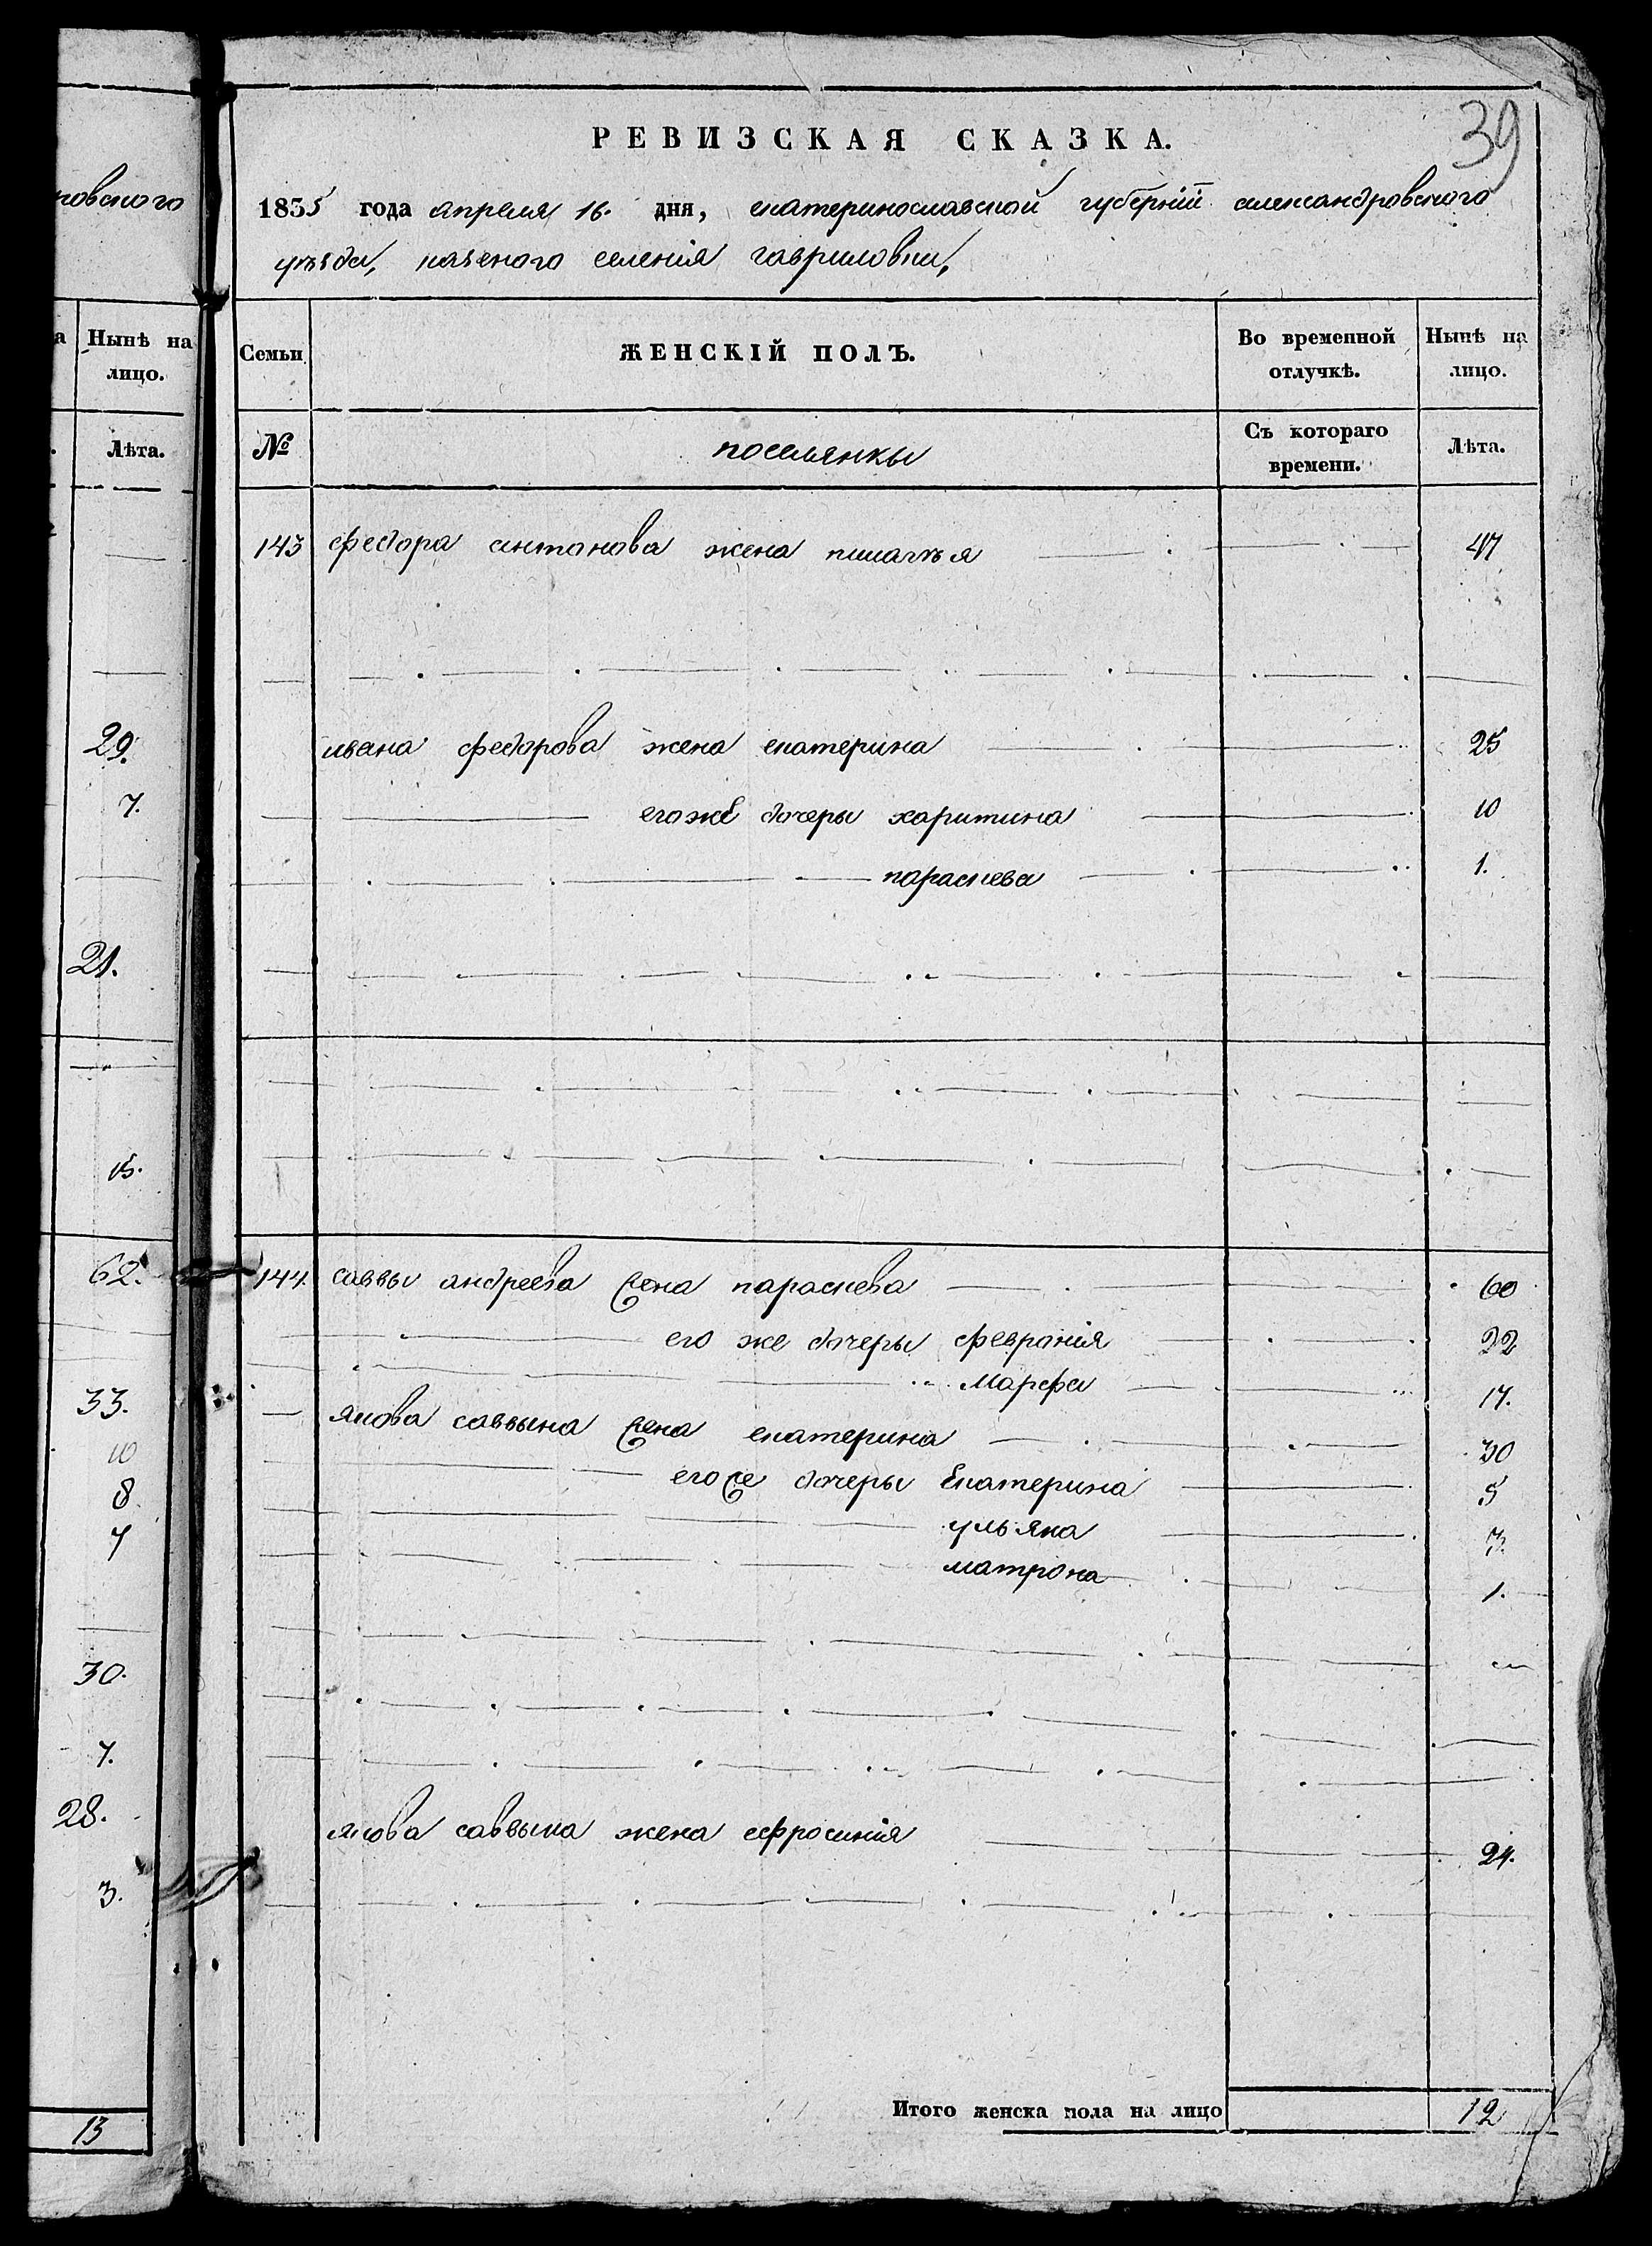 39
РЕВИЗСКАЯ СКАЗКА.
1835 года апреля 16. дня, екатеринославской губернїи александровского
уезда, казеного селенїя гавриловки,
новского
а Нынѣ на лицо.
Лѣта.
29.
7.
21.
15.
62.
33.
10
8.
7
30.
7.
28.
3.
13
Семьи ЖЕНСКІЙ ПОЛЪ. Во временной отлучкѣ. Нынѣ на лицо.
№ поселянки Съ котораго времени. Лѣта.
143 федора антонова жена 47
ивана федорова жена екатерина 25
егоже дочеры харитина 10
параскева 1.
144. саввы андреева жена параскева 60
его же дочеры феврония 22
Марфа 17.
якова саввина жена екатерина 30
егоже дочеры Екатерина 5
ульяна 3.
матрона 1.
якова саввина жена ефросинїя 24.
Итого женска пола на лицо 12